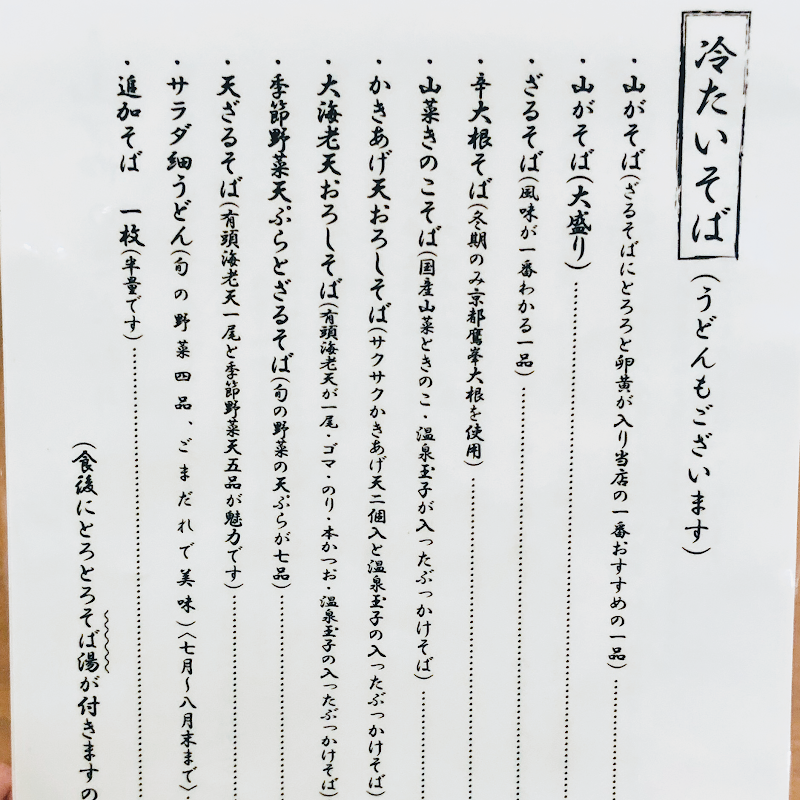 冷たいそば(うどんもございます)
・山がそば(ざるそばにとろろと卵黄が入り当店の一番おすすめの一品)
・山がそば(大盛り)
・ざるそば(風味が一番わかる一品)
・辛大根そば(冬期のみ京都鷹峯大根を使用)
・山菜きのこそば(国産山菜ときのこ・温泉玉子が入ったぶっかけそば)
・かきあげ天おろしそば(サクサクかきあげ天二個入と温泉玉子の入ったぶっかけそば)
・大海老天おろしそば(有頭海老天が一尾・ゴマ・のり・本かつお・温泉玉子の入ったぶっかけそば)
・季節野菜天ぷらとざるそば(旬の野菜の天ぷらが七品)
・天ざるそば(有頭海老天一尾と季節野菜天五品が魅力です)
・サラダ細うどん(旬の野菜四品、ごまだれで美味)〈七月〜八月末まで〉
・追加そば 一枚(半量です)
(食後にとろとろそば湯が付きますの